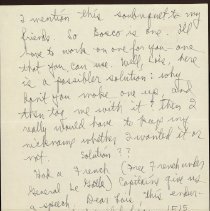 I mention this soubriquet to my
friends. So Bosco is one. I'll
have to work on one for you - one
that you can use. Well, sis, here
is a possible solution: why
don't you make one up, and
then tag me with it & then I
really would have to pay my
nickname whether I wanted it or
not. Solution??
Had a French (Free French under
General De Gaulle) Captain give us
a speech. Dear face this